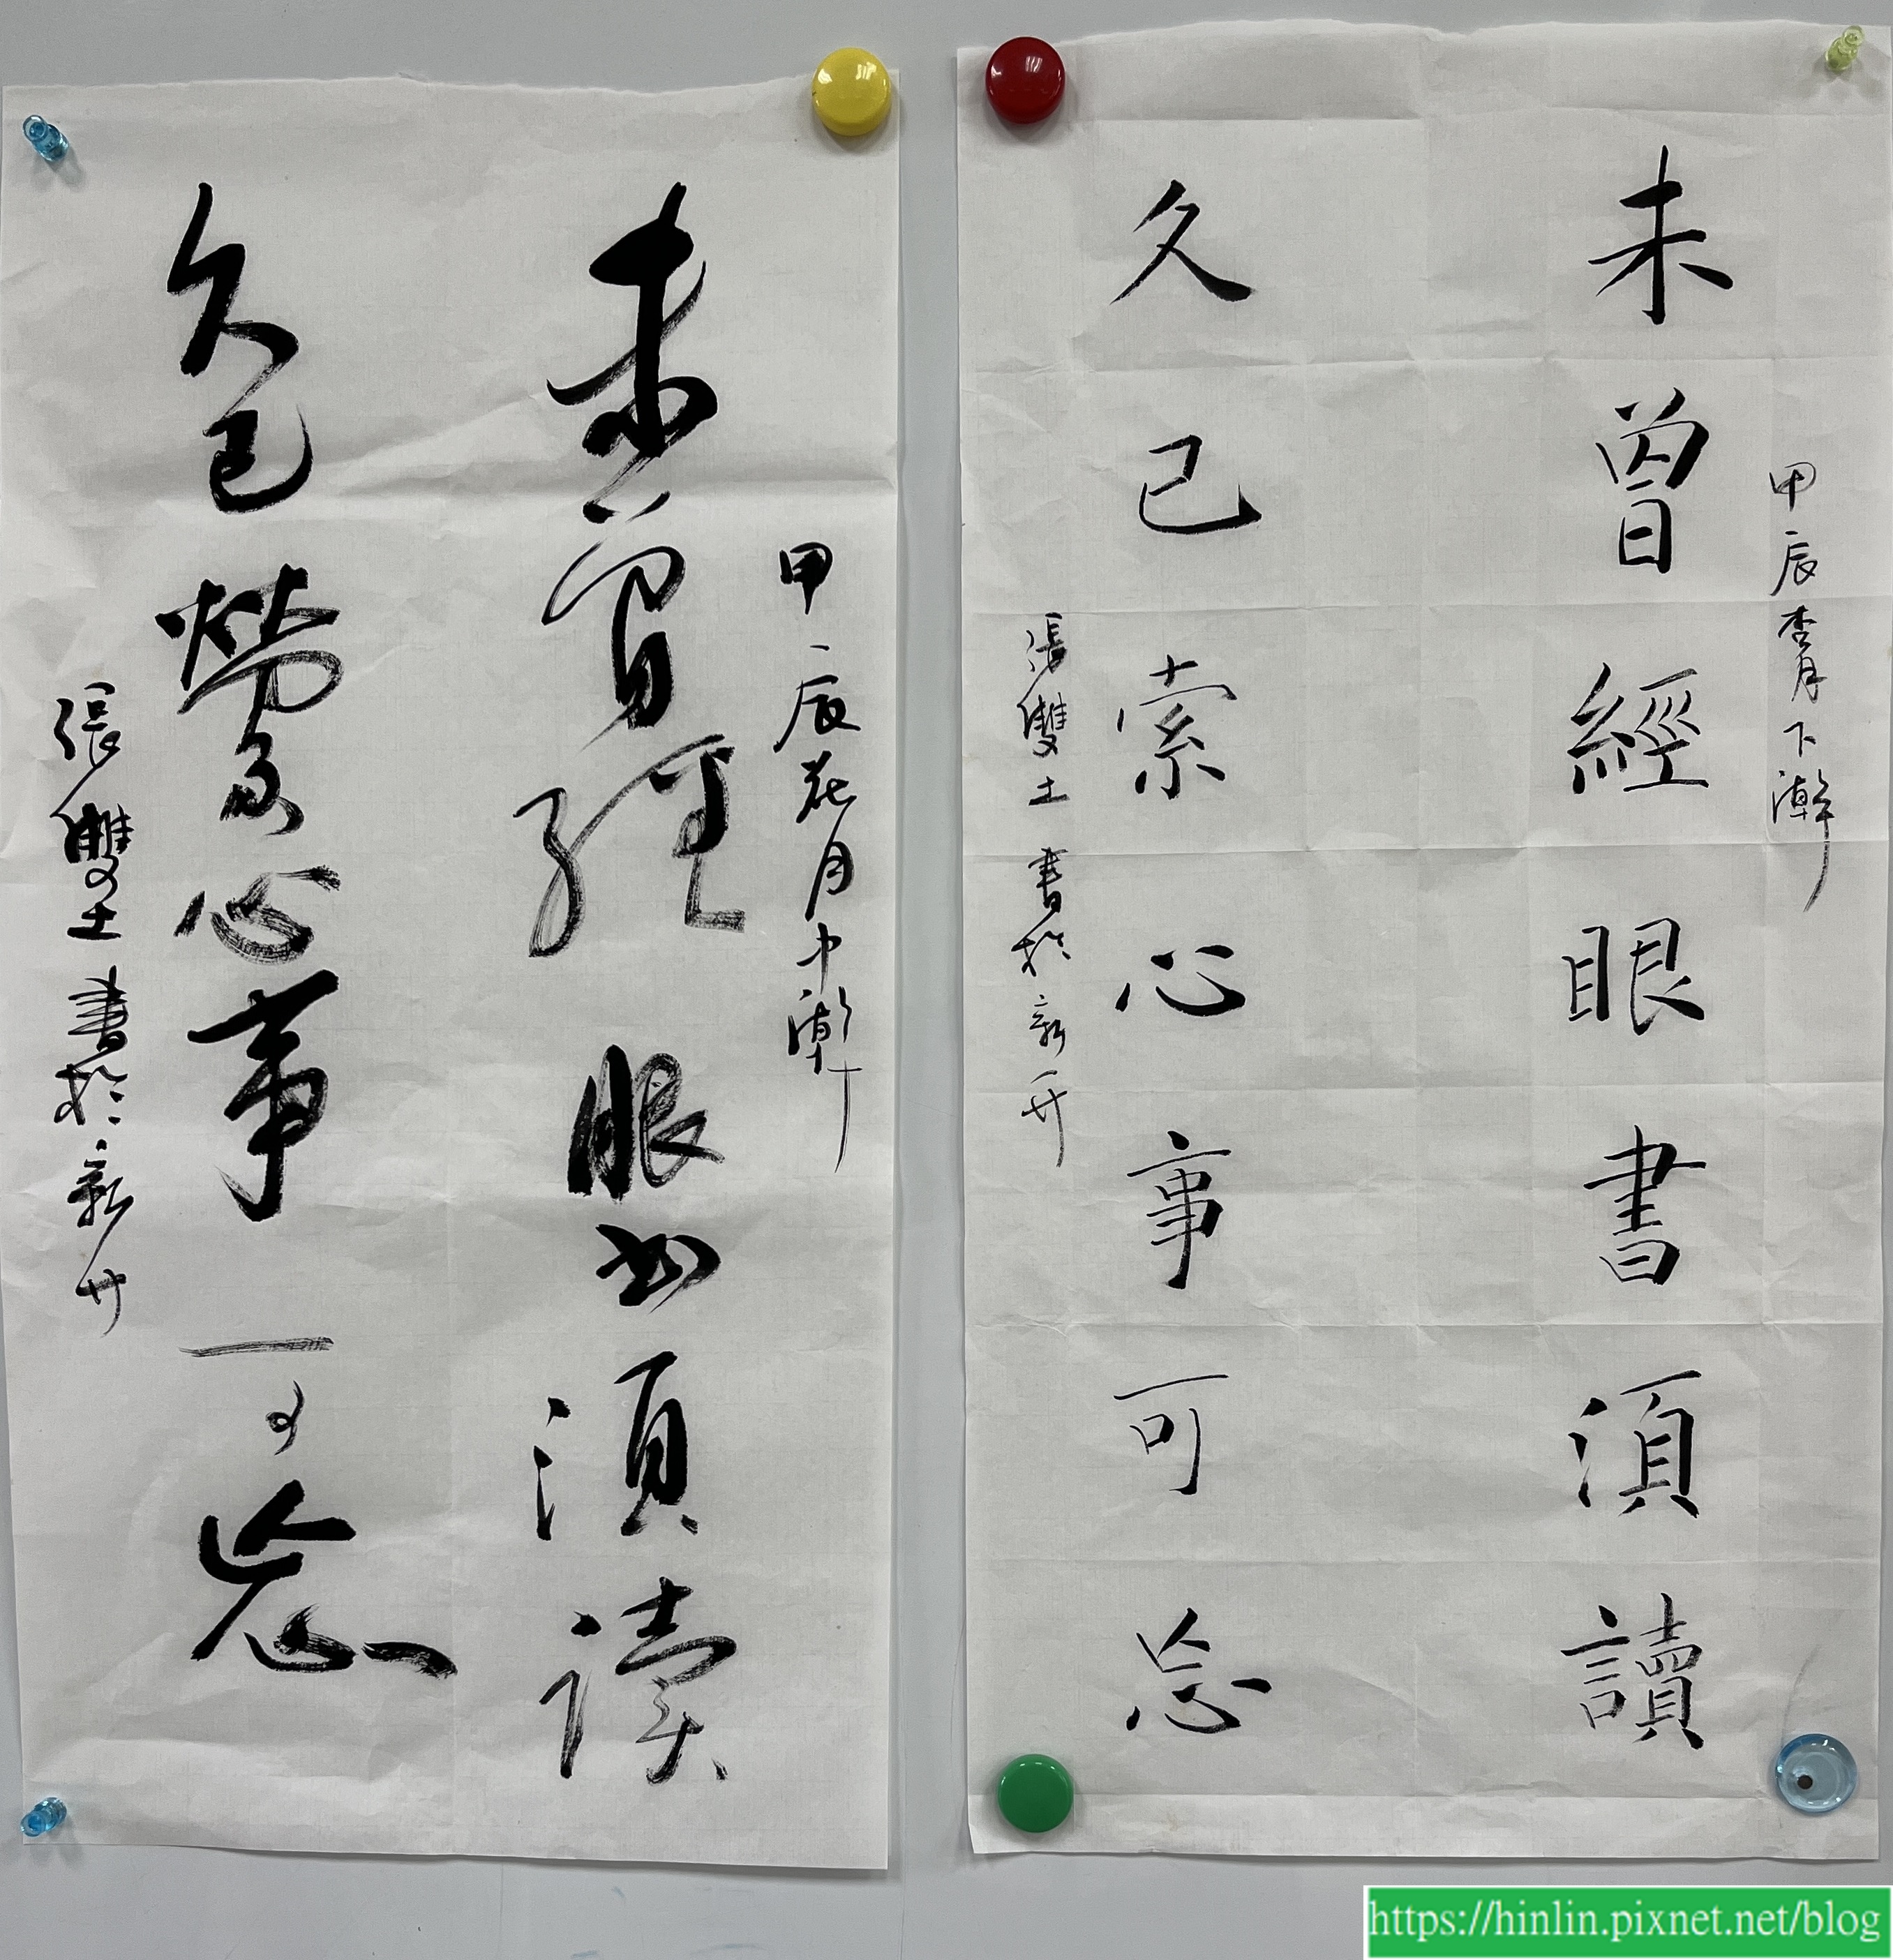 甲辰杏月下澣
未曾經眼書須讀
久已索心事可忘
張雙土書於新
甲辰花月中澣
未曾經眼書須讀
久已縈心事可忘
張雙土書於新
https://hinlin.pixnet.net/blog